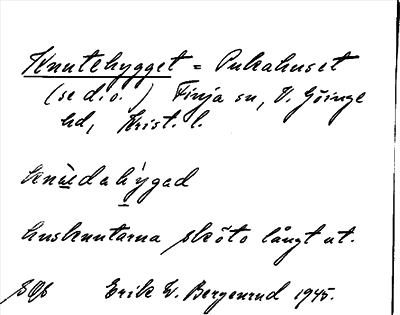 Knutehygget = Pukahuset
(se d.o.) Finja sn, V. Göinge
hd, Krist. l.
husknutarna sköto långt ut.
Erik W. Bergenrud 1945.